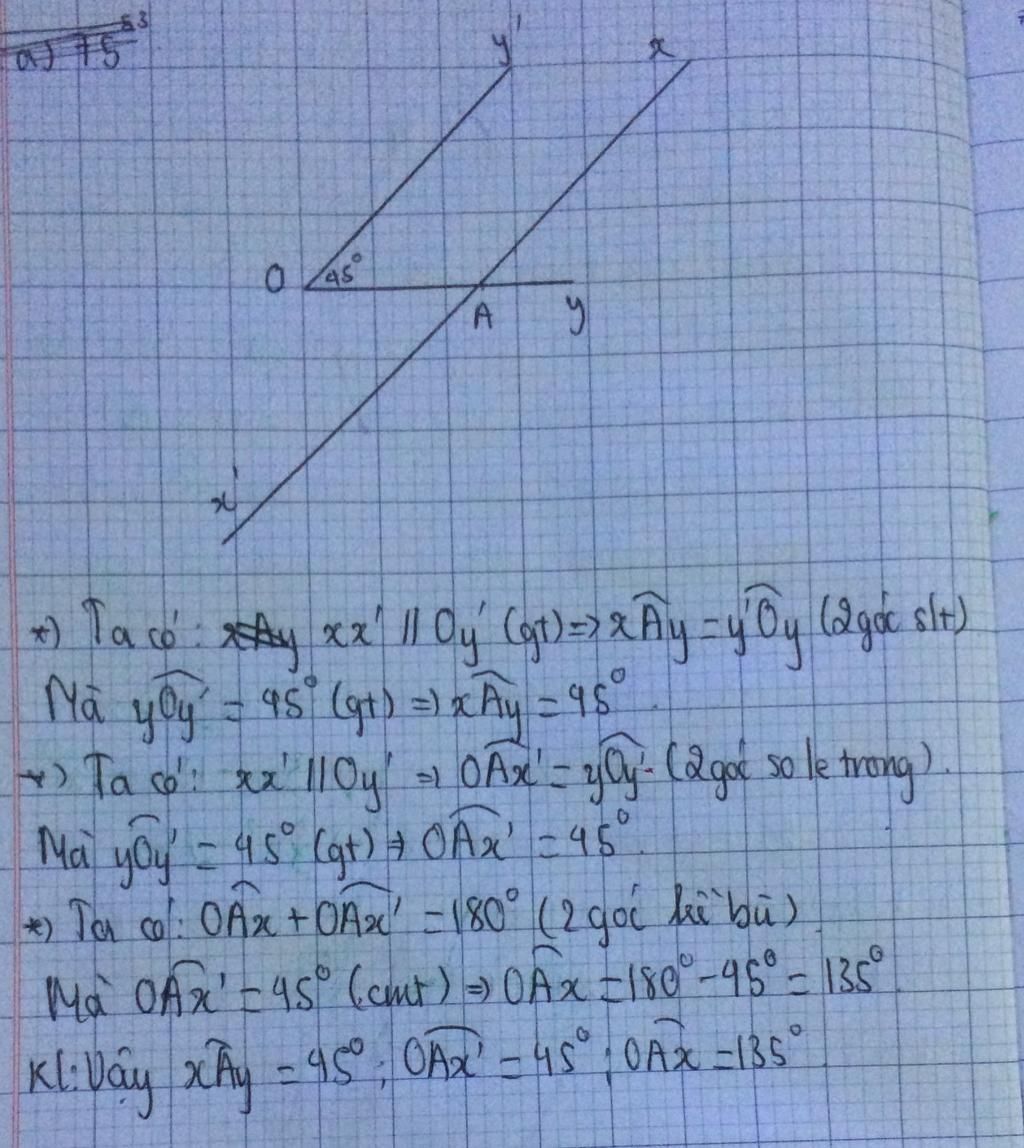 a) 75
y'
x
O
45°
A
y
x'
*) Ta có: xAy xx' // Oy' (gt) => xÂy = y'Ôy (2 góc slt)
Mà yÔy' = 45° (gt) => xÂy = 45°.
*) Ta có: xx' // Oy' => OÂx' = yÔy' (2 góc so le trong).
Mà yÔy' = 45° (gt) => OÂx' = 45°.
*) Ta có: OÂx + OÂx' = 180° (2 góc kề bù)
Mà OÂx' = 45° (cmt) => OÂx = 180° - 45° = 135°.
Kl: Vậy xÂy = 45°; OÂx' = 45°; OÂx = 135°